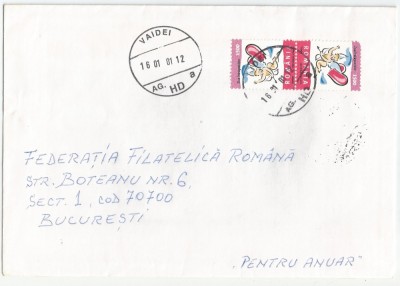 VAIDEI
16 01 01 12
AG. HD a
ROMÂNIA
ROMÂNIA
AG. HD
FEDERAȚIA FILATELICĂ ROMÂNĂ
STR. BOTEANU NR. 6,
SECT. 1, COD 70700
BUCUREȘTI
„PENTRU ANUAR"